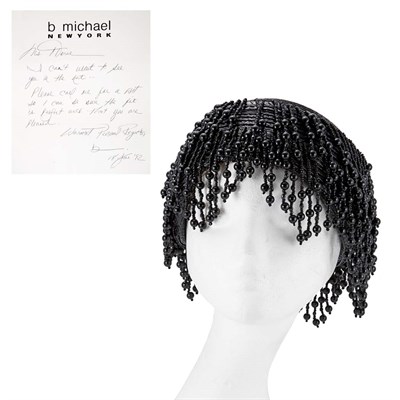 b michael
NEWYORK
I can't wait to see
you in the hat -
Please call me for a visit
so I can be sure the fit
is perfect and that you are
pleased.
Warmest Personal Regards,
b